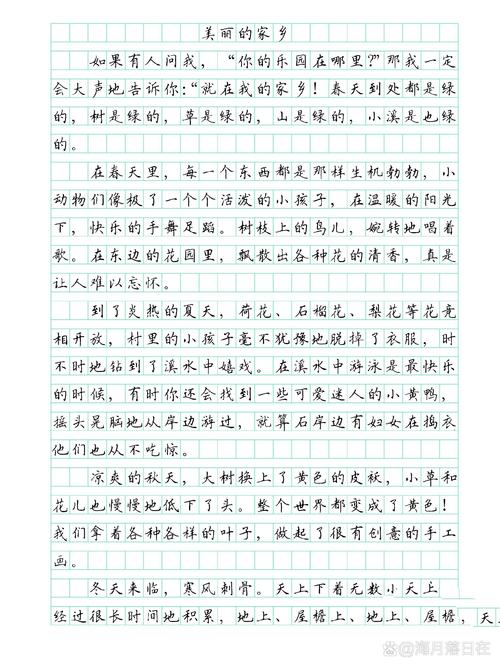 美丽的家乡
如果有人问我，“你的乐园在哪里？”那我一定
会大声地告诉你：“就在我的家乡！春天到处都是绿
的，树是绿的，草是绿的，山是绿的，小溪是也绿
的。
在春天里，每一个东西都是那样生机勃勃，小
动物们像极了一个个活泼的小孩子，在温暖的阳光
下，快乐的手舞足蹈。树枝上的鸟儿，婉转地唱着
歌。在东边的花园里，飘散出各种花的清香，真是
让人难以忘怀。
到了炎热的夏天，荷花、石榴花、梨花等花竞
相开放，村里的小孩子毫不犹豫地脱掉了衣服，时
不时地钻到了溪水中嬉戏。在溪水中游泳是最快乐
的时候，有时你还会找到一些可爱迷人的小黄鸭，
摇头晃脑地从岸边游过，就算石岸边有妇女在捣衣
他们也从不吃惊。
凉爽的秋天，大树换上了黄色的皮袄，小草和
花儿也慢慢地低下了头。整个世界都变成了黄色！
我们拿着各种各样的叶子，做起了很有创意的手工
画。
冬天来临，寒风刺骨。天上下着无数小天上
经过很长时间地积累，地上、屋檐上、地上、屋檐，天
@海月落日在